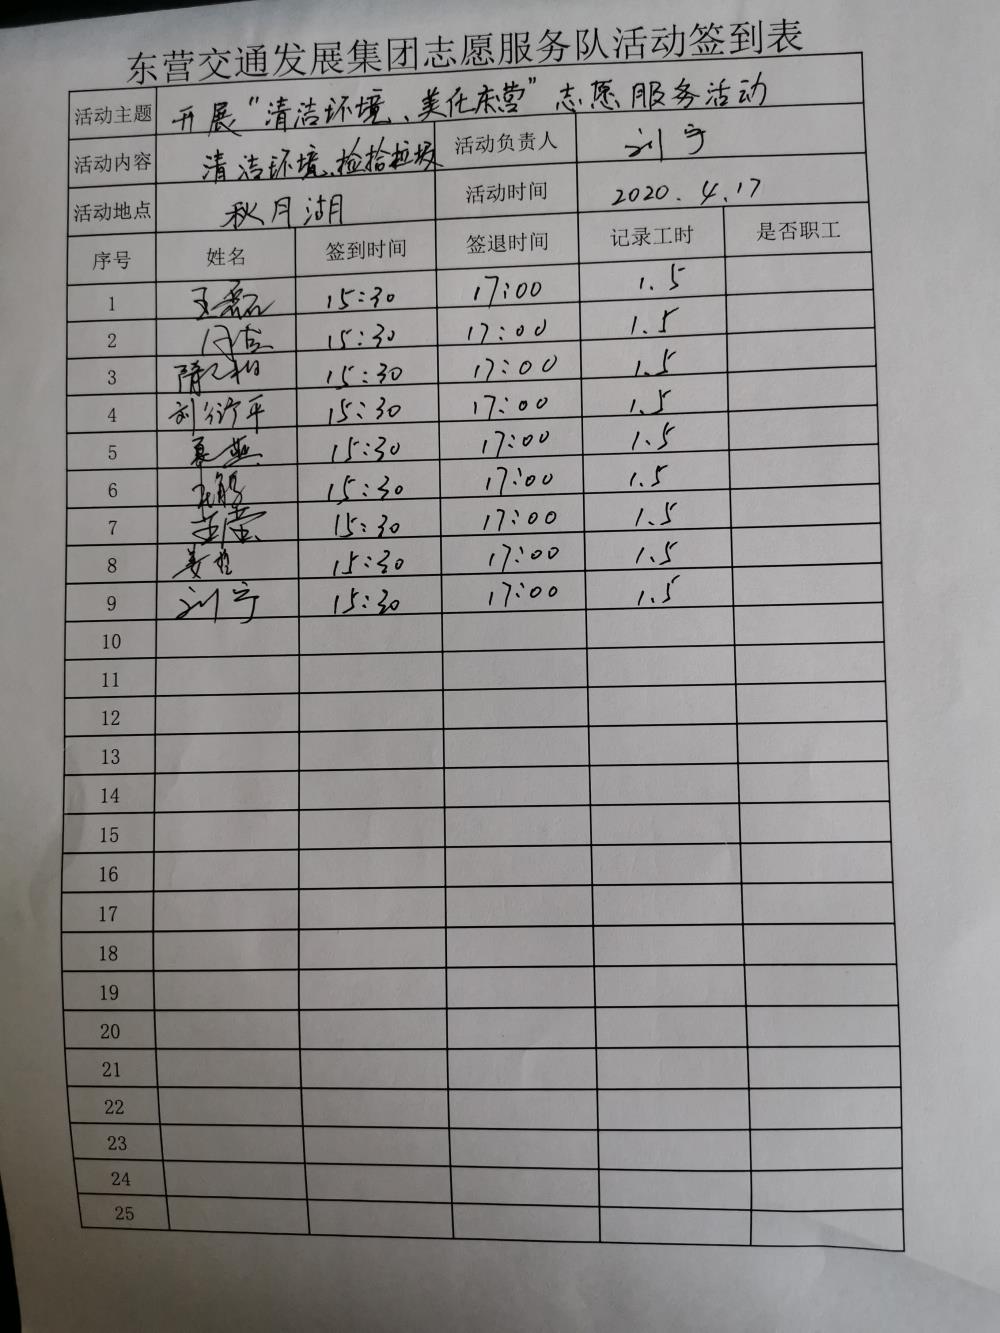 东营交通发展集团志愿服务队活动签到表
活动主题 开展“清洁环境、美在东营”志愿服务活动
活动内容 清洁环境、捡拾垃圾 活动负责人 刘宁
活动地点 秋月湖 活动时间 2020.4.17
序号 姓名 签到时间 签退时间 记录工时 是否职工
1 王磊 15:30 17:00 1.5
2 15:30 17:00 1.5
3 15:30 17:00 1.5
4 15:30 17:00 1.5
5 夏燕 15:30 17:00 1.5
6 15:30 17:00 1.5
7 15:30 17:00 1.5
8 15:30 17:00 1.5
9 刘宁 15:30 17:00 1.5
10
11
12
13
14
15
16
17
18
19
20
21
22
23
24
25